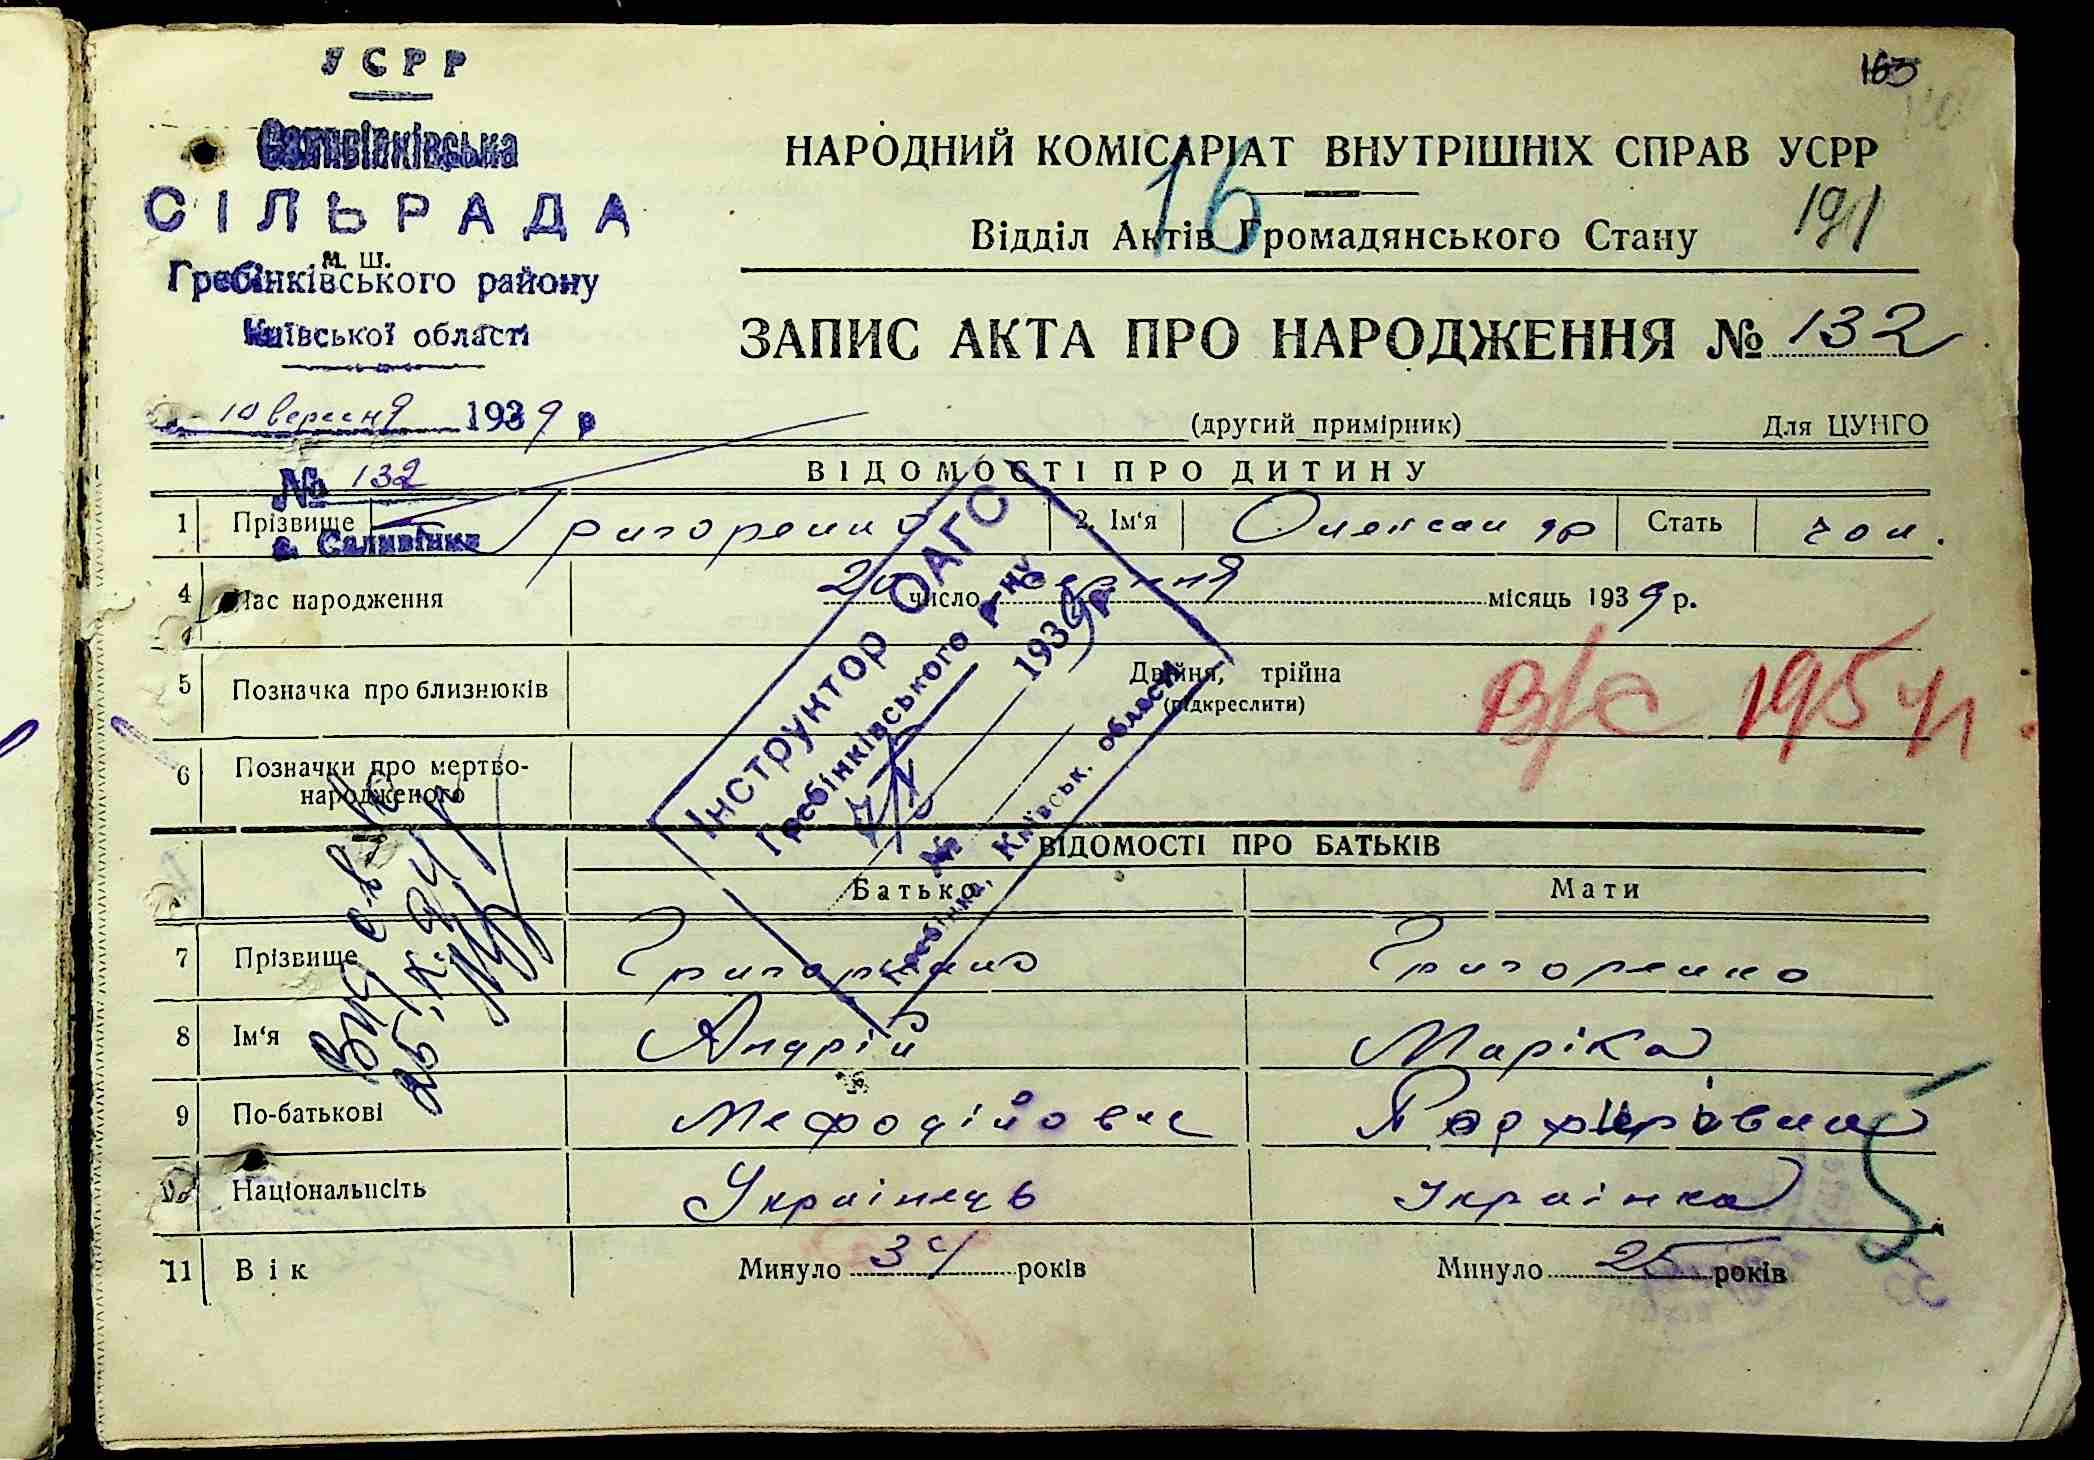 163
УСРР
Саливінківська
СІЛЬРАДА
м. ш.
Гребінківського району
Київської області
10 вересня 1939 р
№ 132
с. Саливінка
НАРОДНИЙ КОМІСАРІАТ ВНУТРІШНІХ СПРАВ УСРР
16
191
Відділ Актів Громадянського Стану
ЗАПИС АКТА ПРО НАРОДЖЕННЯ № 132
(другий примірник) Для ЦУНГО
ВІДОМОСТІ ПРО ДИТИНУ
1 Прізвище Григоренко 2. Ім'я Олександр Стать чол.
4 Час народження 20 число серпня місяць 1939 р.
5 Позначка про близнюків Двійня, трійна
(підкреслити)
В/С 1954
6 Позначки про мертво-
народженого
Інструктор ОАГС
Гребінківського р-ну
1939р
№
Гребінка, Київськ. області
ВІДОМОСТІ ПРО БАТЬКІВ
Батько Мати
7 Прізвище Григоренко Григоренко
8 Ім'я Андрій Маріка
9 По-батькові Мефодійович
10 Національність Українець Українка
11 Вік Минуло 34 років Минуло 25 років